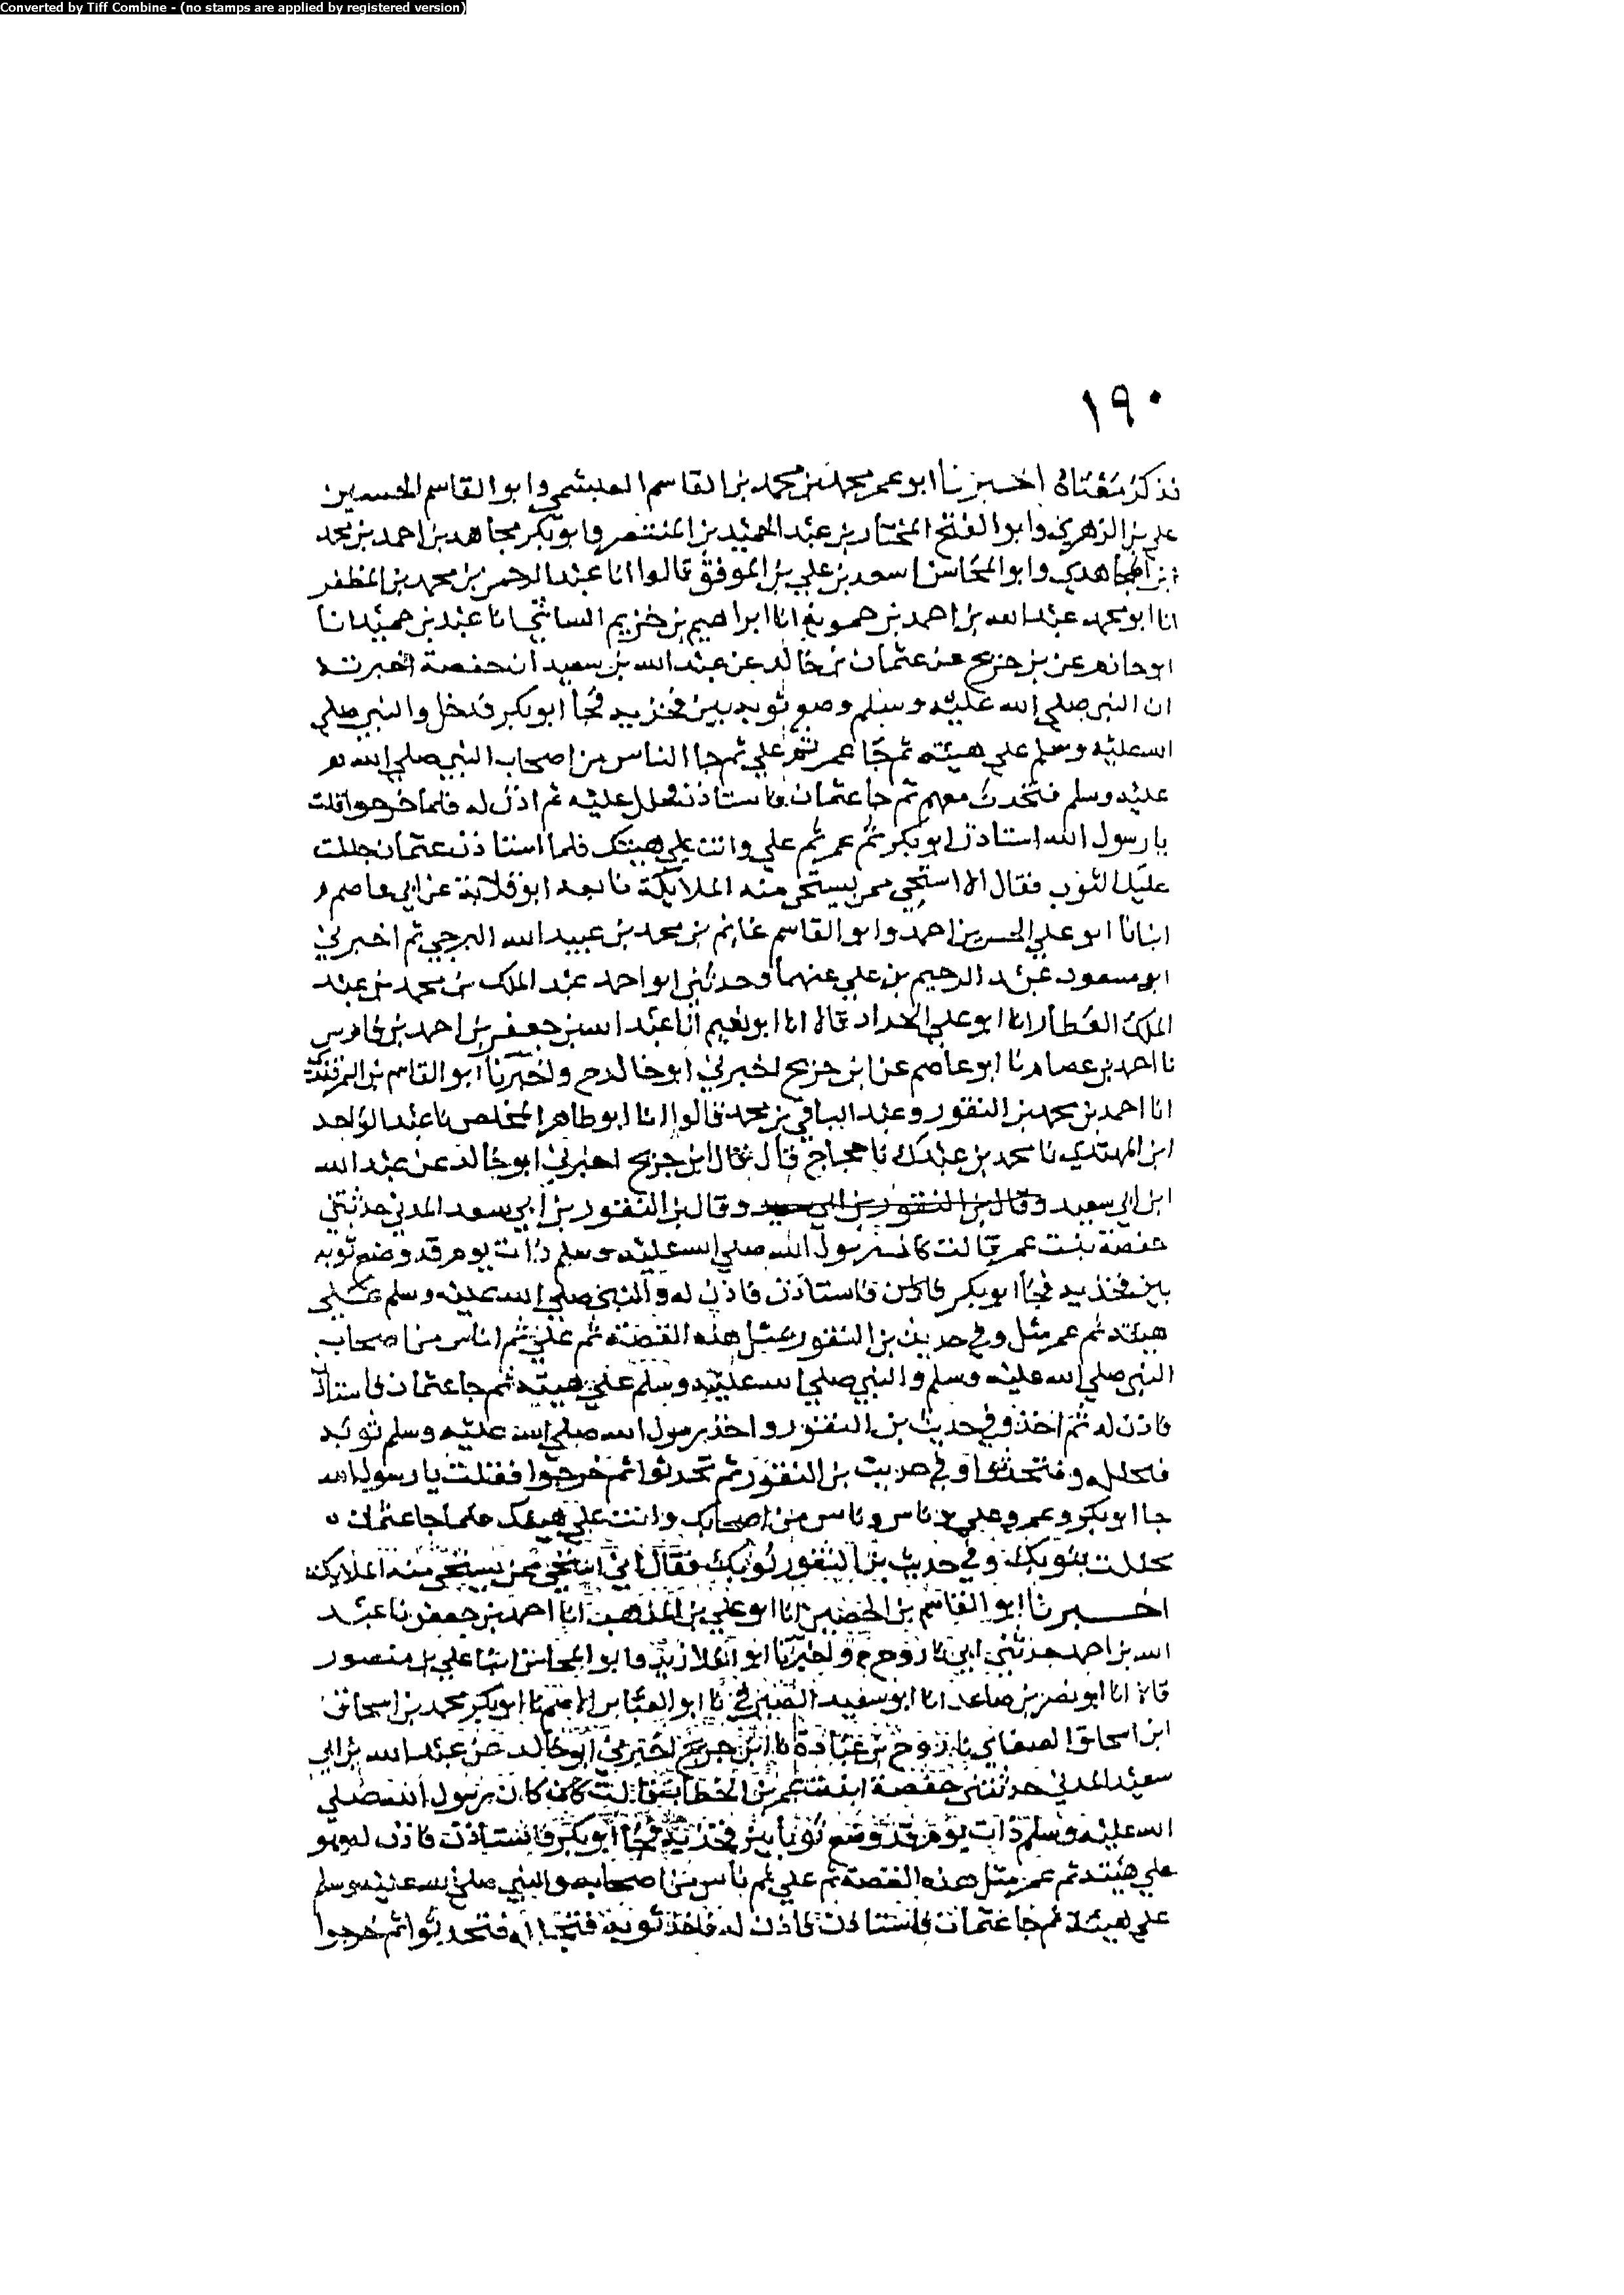 Converted by Tiff Combine - (no stamps are applied by registered version)
١٩٠
نذكر معناه اخبرنا ابو عمر محمد بن محمد بن القاسم العبشمي وابو القاسم الحسين
علي بن الزهري وابو الفتح المختار بن عبد الحميد بن المنتصر وابو بكر مجاهد بن احمد بن محمد
بن المجاهدي وابو المحاسن اسعد بن علي بن الموفق قالوا انا عبد الرحمن بن محمد بن المظفر
انا ابو محمد عبد الله بن احمد بن حمويه انا ابراهيم بن خزيم الشاشي انا عبد بن حميد انا
ابو عاصم عن بن جريج عن عثمان بن خالد عن عبد الله بن سعيد ان حفصة اخبرته
ان النبي صلى الله عليه وسلم وضع ثوبه بين فخذيه فجا ابو بكر فدخل والنبي صلى
الله عليه وسلم على هيئته ثم جا عمر ثم علي ثم جا الناس من اصحاب النبي صلى الله
عليه وسلم فتحدث معهم ثم جا عثمان فاستاذن فجلل عليه ثم اذن له فلما خرجوا قلت
يا رسول الله استاذن ابو بكر ثم عمر ثم علي وانت على هيئتك فلما استاذن عثمان جللت
عليك الثوب فقال الا استحي ممن يستحي منه الملايكة تابعه ابو قلابة عن ابي عاصم
انبانا ابو علي الحسن بن احمد وابو القاسم غانم بن محمد بن عبيد الله البرجي ثم اخبرني
ابو مسعود عبد الرحيم بن علي عنهما وحدثني ابو احمد عبد الملك بن محمد بن عبد
الملك العطار انا ابو علي الحداد قالا انا ابو نعيم انا عبد الله بن جعفر بن احمد بن فارس
نا احمد بن عصام نا ابو عاصم عن ابن جريج اخبرني ابو خالد ح واخبرنا ابو القاسم بن السمرقندي
انا احمد بن محمد بن النقور وعبد الباقي بن محمد قالوا انا ابو طاهر المخلص نا عبد الواحد
ابن المهتدي نا محمد بن عبدك نا حجاج قال قال ابن جريج اخبرني ابو خالد عن عبد الله
ابن ابي سعيد وقال بن النقور بن ابي سعيد وقال بن النقور بن ابي سعد المدني حدثتني
حفصة بنت عمر قالت كان رسول الله صلى الله عليه وسلم ذات يوم قد وضع ثوبه
بين فخذيه فجا ابو بكر فاستاذن فاذن له والنبي صلى الله عليه وسلم على
هيئته ثم عمر مثل وفي حديث بن النقور بمثل هذه القصة ثم علي ثم اناس من اصحاب
النبي صلى الله عليه وسلم والنبي صلى الله عليه وسلم على هيئته ثم جا عثمان فاستاذن
فاذن له ثم اخذ وفي حديث بن النقور واخذ رسول الله صلى الله عليه وسلم ثوبه
فتجلله فتحدثوا وفي حديث بن النقور ثم تحدثوا ثم خرجوا فقلت يا رسول الله
جا ابو بكر وعمر وعلي وناس من اصحابك وانت على هيئتك فلما جا عثمان
تجللت بثوبك وفي حديث بن النقور ثوبك فقال اني استحي ممن يستحي منه الملايكة
اخبرنا ابو القاسم بن الحصين انا ابو علي بن المذهب انا احمد بن جعفر نا عبد
الله بن احمد حدثني ابي نا روح ح واخبرنا وابو المحاسن علي بن منصور
قالا انا ابو نصر بن صاعد انا ابو سعيد الصيرفي نا ابو العباس الاصم نا ابو بكر محمد بن اسحاق
ابن اسحاق الصغاني نا روح بن عبادة نا ابن جريج اخبرني ابو خالد عن عبد الله بن ابي
سعيد المدني حدثتني حفصة ابنت عمر بن الخطاب قالت كان رسول الله صلى
الله عليه وسلم ذات يوم قد وضع ثوبا بين فخذيه فجا ابو بكر فاستاذن فاذن له وهو
على هيئته ثم عمر بمثل هذه القصة ثم علي ثم ناس من اصحابه والنبي صلى الله عليه وسلم
على هيئته ثم جا عثمان فاستاذن فاذن له فاخذ ثوبه فتجلله فتحدثوا ثم خرجوا